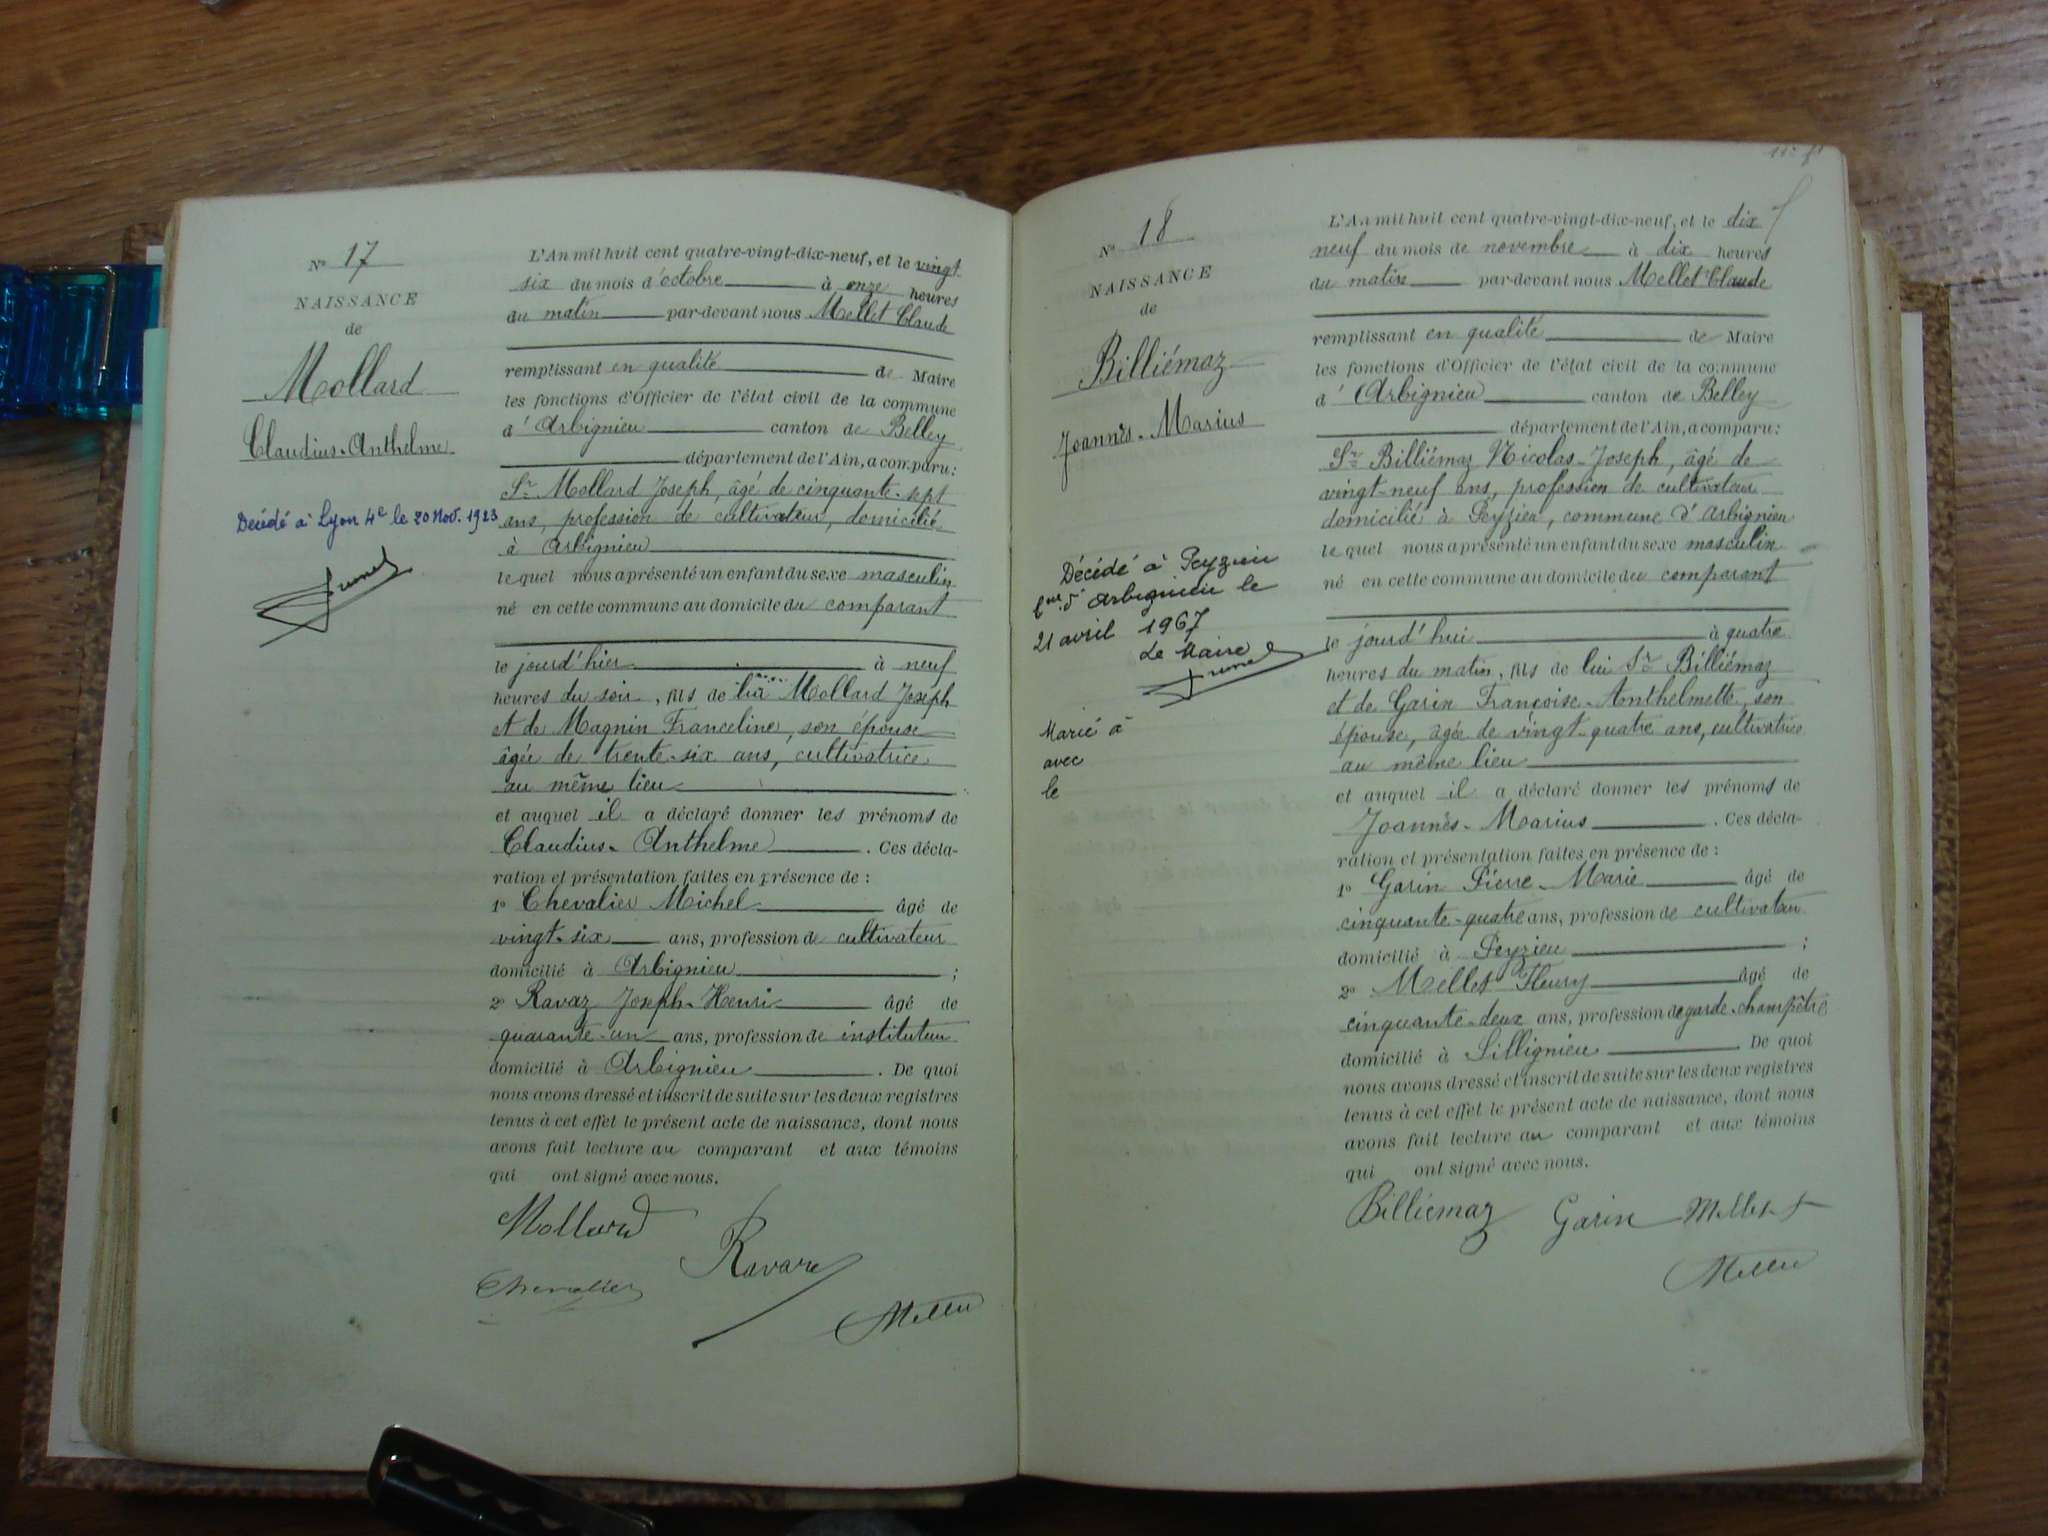 N° 17
NAISSANCE
de
Mollard
Claudius-Anthelme
Décédé à Lyon 4e le 20 Nov. 1923
L'An mil huit cent quatre-vingt-dix-neuf, et le vingt
six du mois d'octobre à onze heures
du matin par-devant nous Mellet Claude
remplissant en qualité de Maire
les fonctions d'Officier de l'état civil de la commune
d'Arbignieu canton de Belley
département de l'Ain, a comparu:
Sr Mollard Joseph, âgé de cinquante-sept
ans, profession de cultivateur, domicilié
à Arbignieu
lequel nous a présenté un enfant du sexe masculin
né en cette commune au domicile du comparant
le jourd'hier à neuf
heures du soir, fils de lui Mollard Joseph
et de Magnin Franceline, son épouse
âgée de trente-six ans, cultivatrice
au même lieu
et auquel il a déclaré donner les prénoms de
Claudius-Anthelme. Ces décla-
ration et présentation faites en présence de :
1° Chevalier Michel âgé de
vingt-six ans, profession de cultivateur
domicilié à Arbignieu ;
2° Ravaz Joseph-Henri âgé de
quarante-un ans, profession de instituteur
domicilié à Arbignieu. De quoi
nous avons dressé et inscrit de suite sur les deux registres
tenus à cet effet le présent acte de naissance, dont nous
avons fait lecture au comparant et aux témoins
qui ont signé avec nous.
Mollard
Ravaz
Chevalier
Mellet
N° 18
NAISSANCE
de
Billiémaz
Joannès-Marius
Décédé à Peyzieu
Cne d'Arbignieu le
21 avril 1967
Le Maire
Marié à
avec
le
L'An mil huit cent quatre-vingt-dix-neuf, et le dix
neuf du mois de novembre à dix heures
du matin par-devant nous Mellet Claude
remplissant en qualité de Maire
les fonctions d'Officier de l'état civil de la commune
d'Arbignieu canton de Belley
département de l'Ain, a comparu:
Sr Billiémaz Nicolas-Joseph, âgé de
vingt-neuf ans, profession de cultivateur
domicilié à Peyzieu, commune d'Arbignieu
lequel nous a présenté un enfant du sexe masculin
né en cette commune au domicile du comparant
le jourd'hui à quatre
heures du matin, fils de lui Sr Billiémaz
et de Garin Françoise-Anthelmette, son
épouse, âgée de vingt-quatre ans, cultivatrice
au même lieu
et auquel il a déclaré donner les prénoms de
Joannès-Marius. Ces décla-
ration et présentation faites en présence de :
1° Garin Pierre-Marie âgé de
cinquante-quatre ans, profession de cultivateur
domicilié à Peyzieu ;
2° Mellet Fleury âgé de
cinquante-deux ans, profession de garde-champêtre
domicilié à Sillignieu. De quoi
nous avons dressé et inscrit de suite sur les deux registres
tenus à cet effet le présent acte de naissance, dont nous
avons fait lecture au comparant et aux témoins
qui ont signé avec nous.
Billiémaz Garin Mellet
Mellet